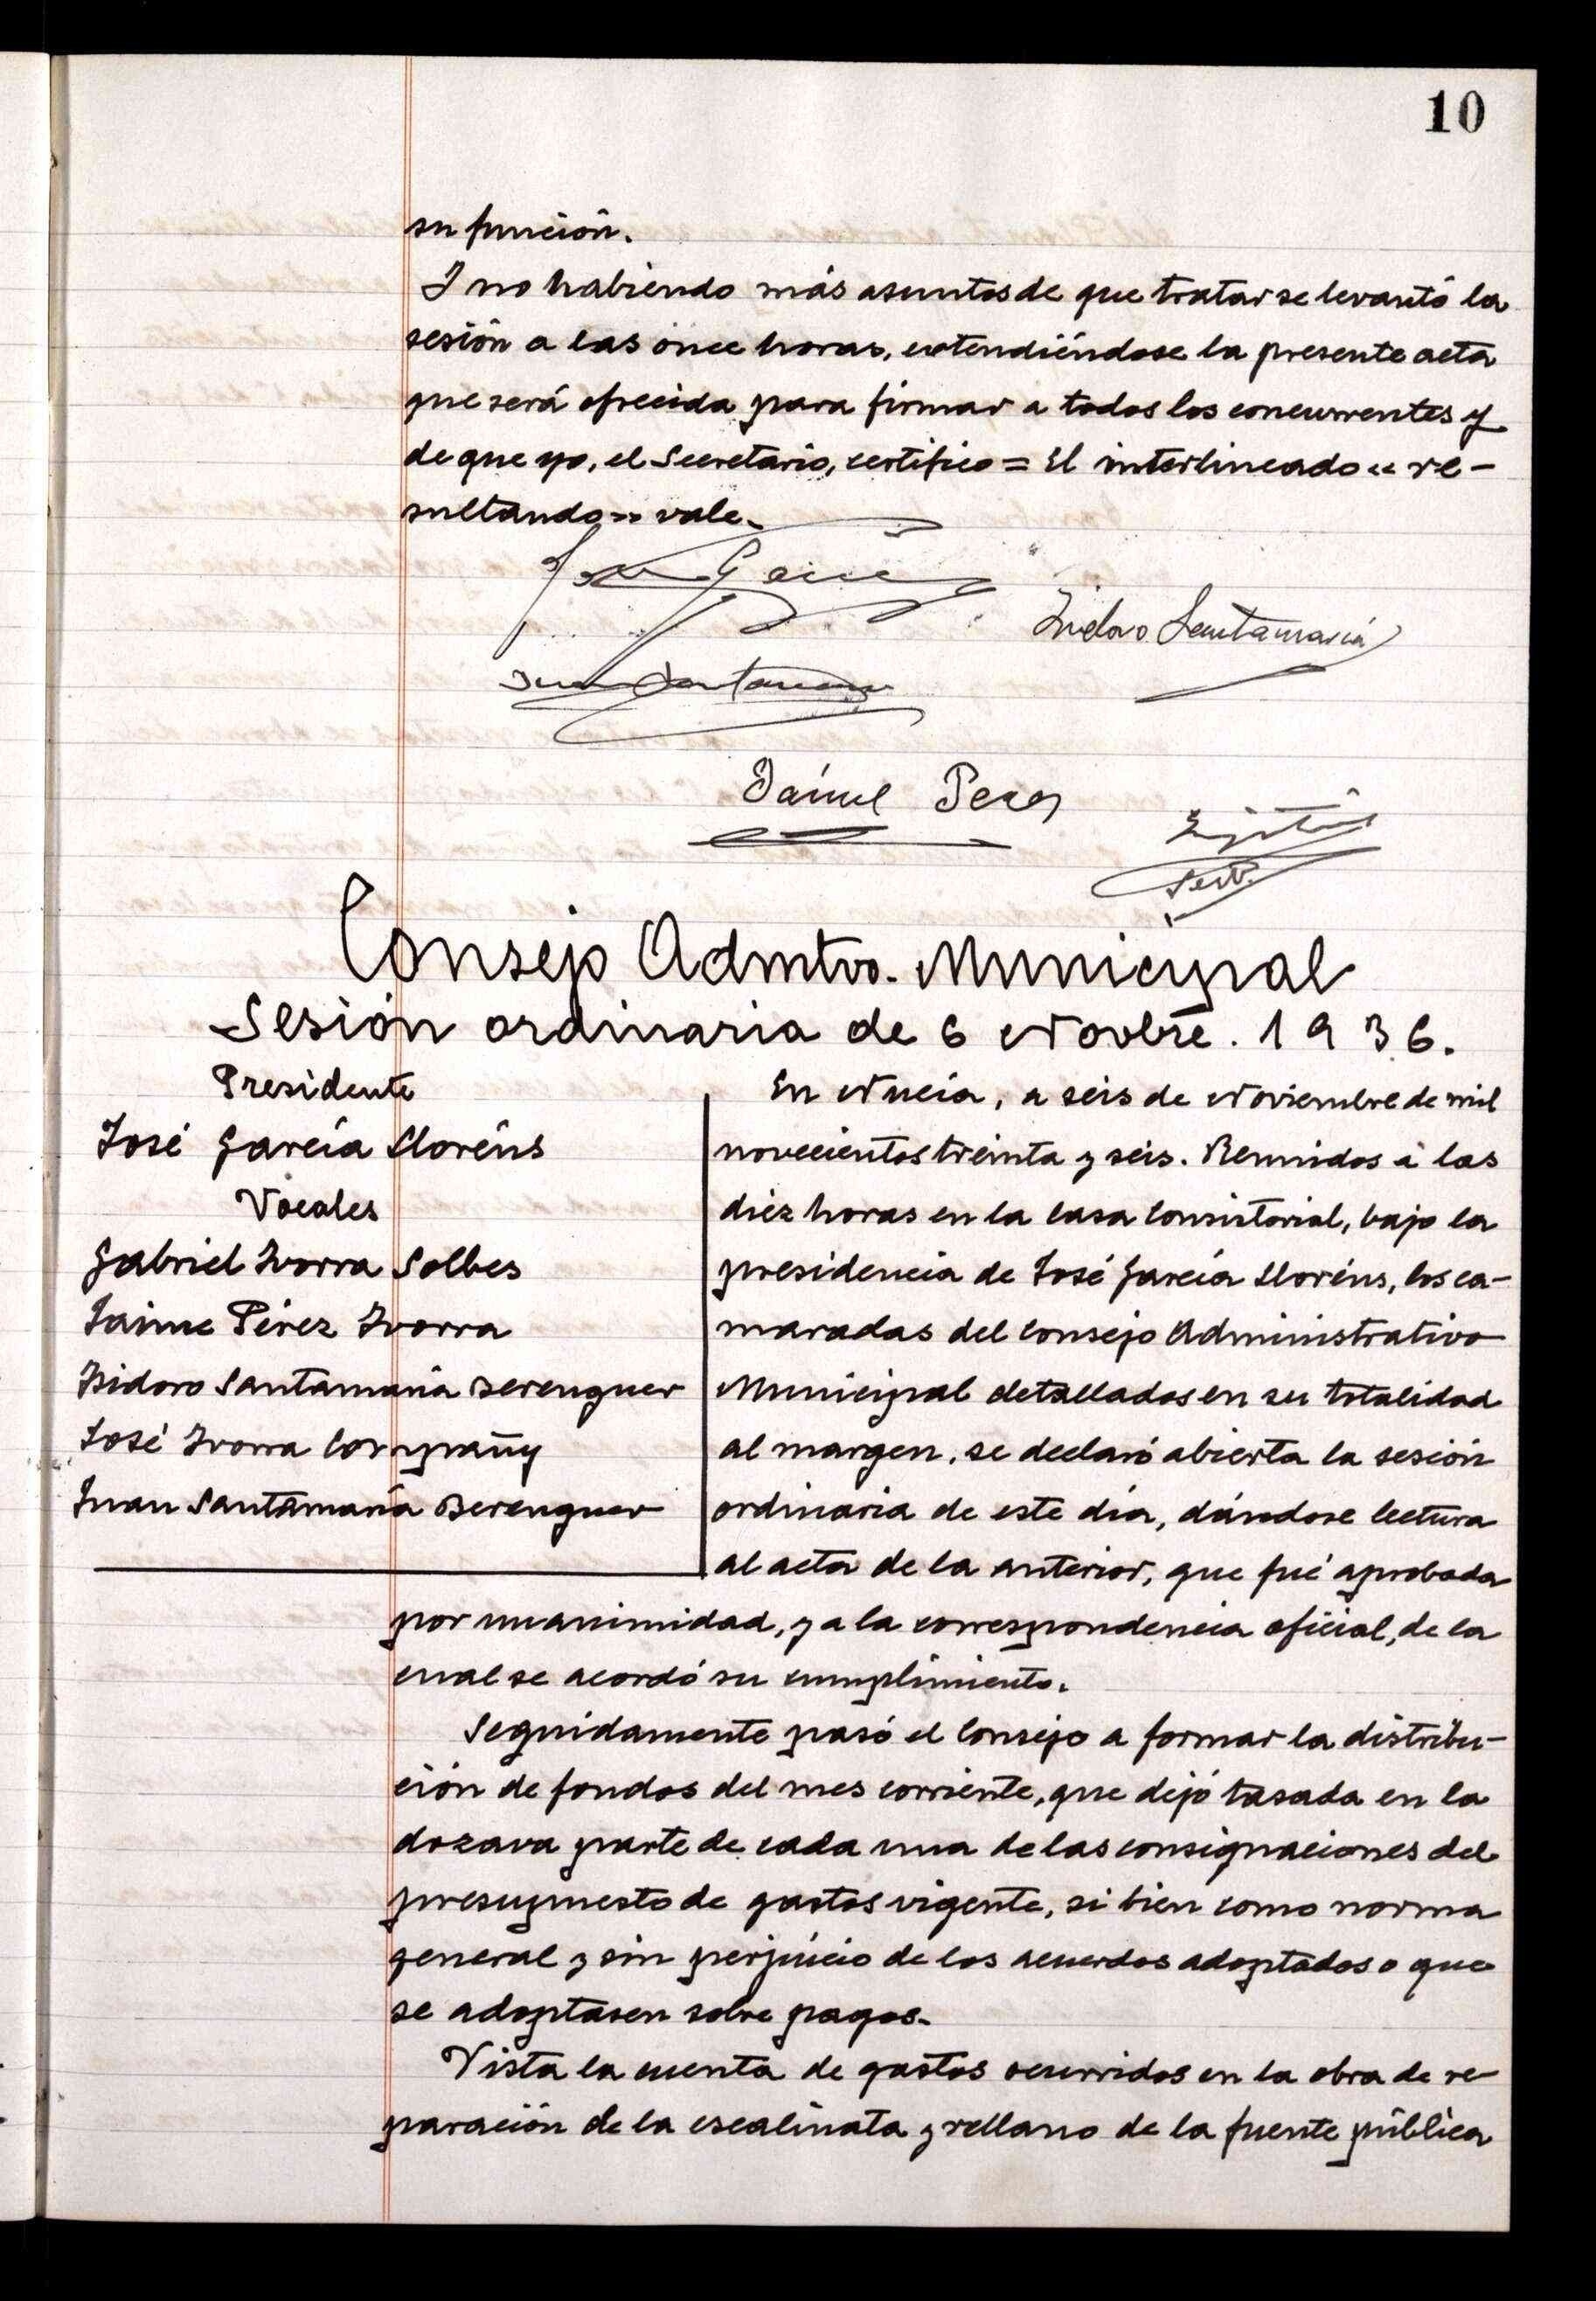 10
su función.
Y no habiendo más asuntos de que tratar se levantó la
sesión a las once horas, extendiéndose la presente acta
que será ofrecida para firmar a todos los concurrentes y
de que yo, el Secretario, certifico = El interlineado "re-
sultando" vale.
José García
Isidoro Santamaría
Juan Santamaría
Jaime Perez
Consejo Admtvo. Municipal
Sesión ordinaria de 6 Novbre. 1936.
Presidente
José García Lloréns
Vocales
Gabriel Ivorra Solbes
Jaime Pérez Ivorra
Isidoro Santamaría Berenguer
José Ivorra Company
Juan Santamaría Berenguer
En Nucia, a seis de Noviembre de mil
novecientos treinta y seis. Reunidos a las
diez horas en la Casa Consistorial, bajo la
presidencia de José García Lloréns, los ca-
maradas del Consejo Administrativo
Municipal detallados en su totalidad
al margen, se declaró abierta la sesión
ordinaria de este día, dándose lectura
al acta de la anterior, que fué aprobada
por unanimidad, y a la correspondencia oficial, de la
cual se acordó su cumplimiento.
Seguidamente pasó el Consejo a formar la distribu-
ción de fondos del mes corriente, que dejó tasada en la
dozava parte de cada una de las consignaciones del
presupuesto de gastos vigente, si bien como norma
general y sin perjuicio de los acuerdos adoptados o que
se adoptasen sobre pagos.
Vista la cuenta de gastos ocurridos en la obra de re-
paración de la escalinata y rellano de la fuente pública